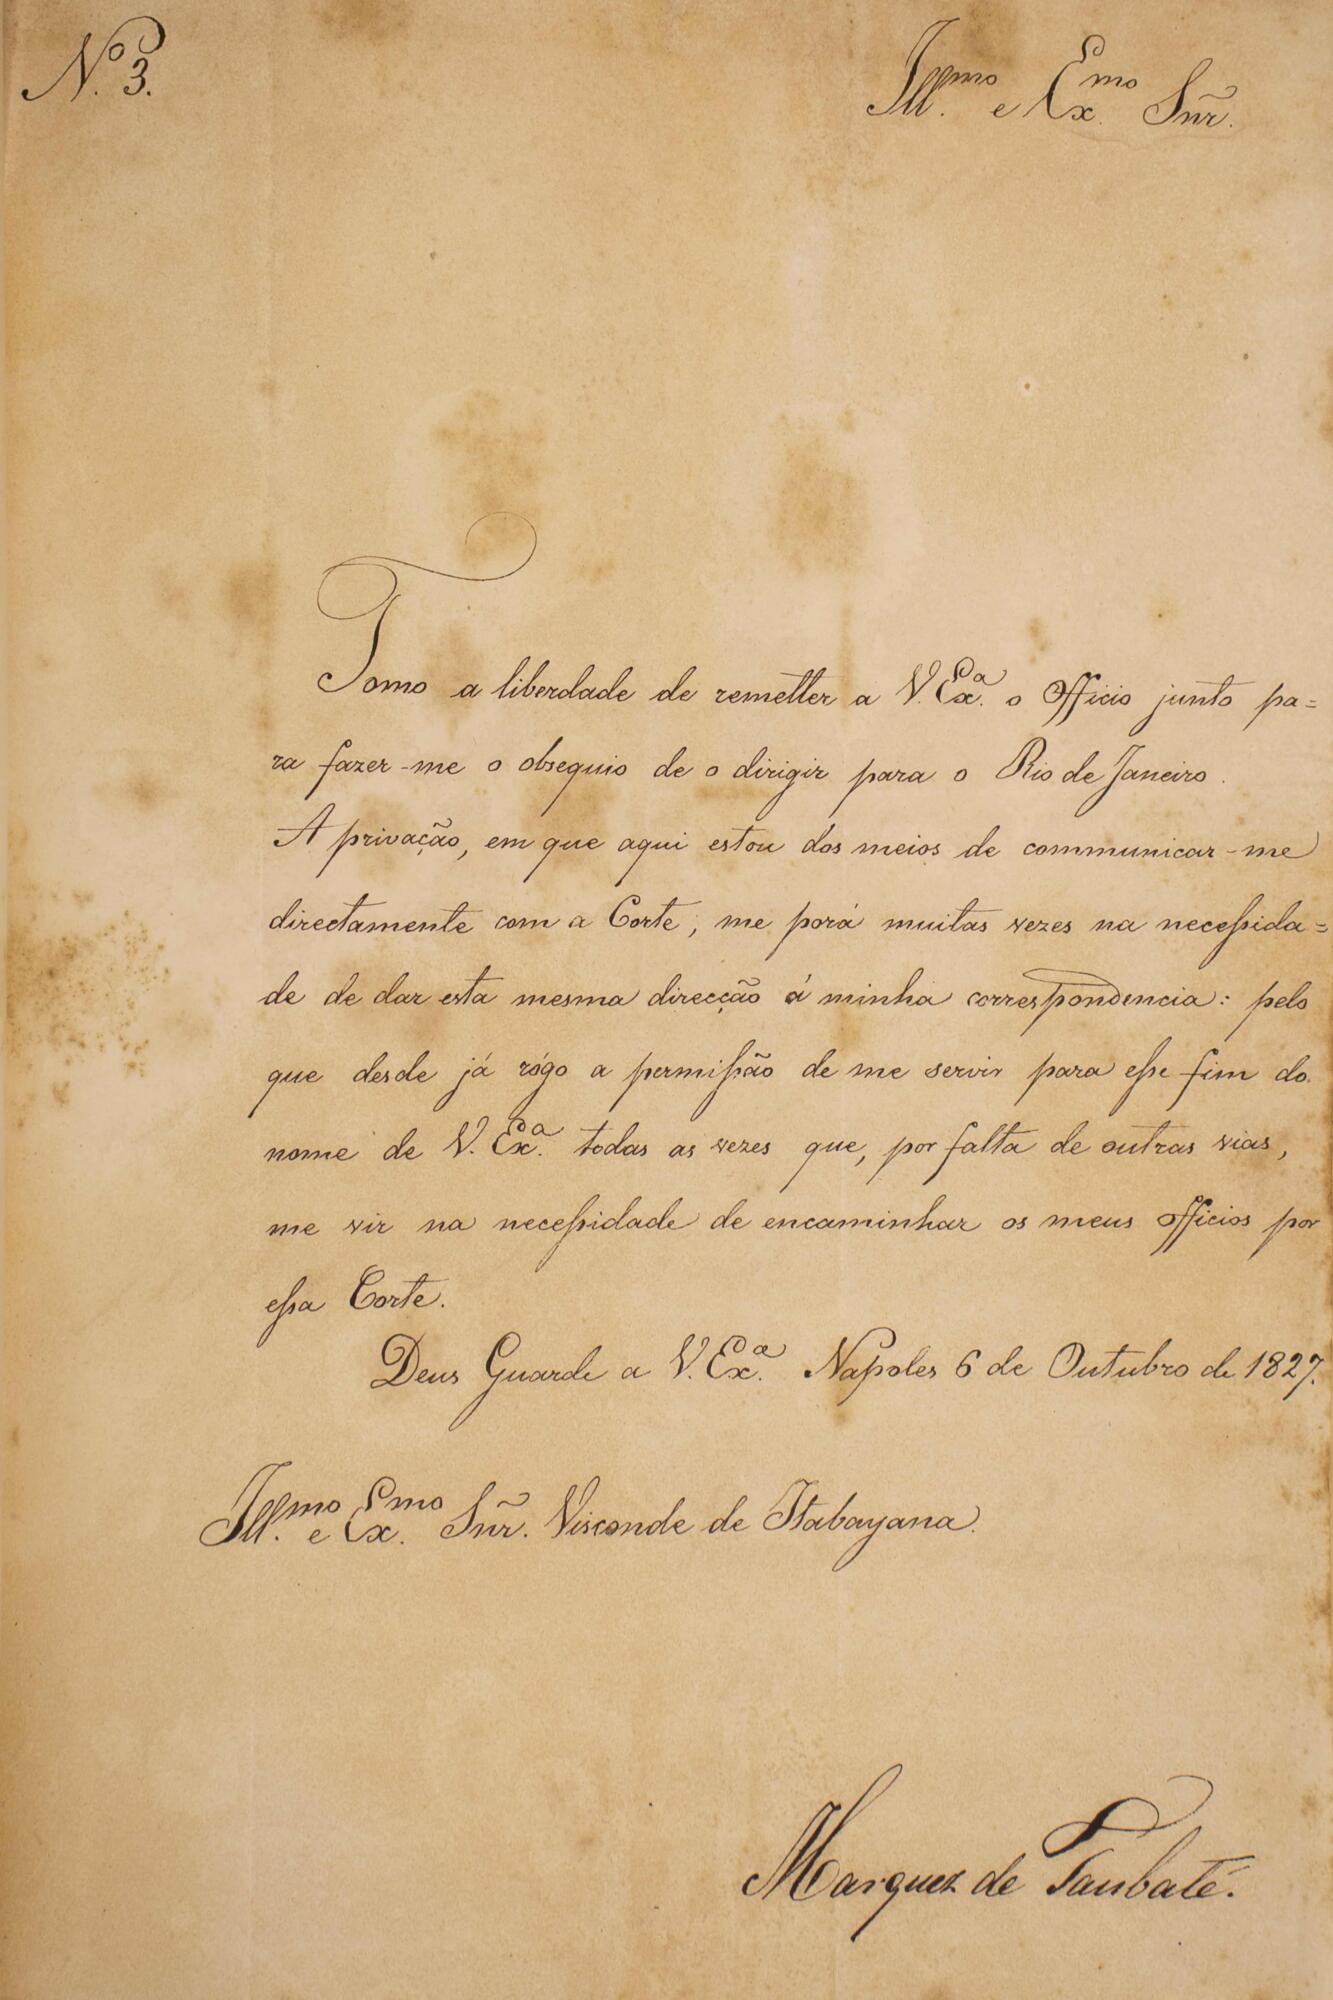 N.º 3.
Ill.mo e Ex.mo Snr̃.
Tomo a liberdade de remetter a V. Ex.ª o Officio junto pa=
ra fazer-me o obsequio de o dirigir para o Rio de Janeiro.
A privação, em que aqui estou dos meios de communicar-me
directamente com a Corte, me porá muitas vezes na necessida=
de de dar esta mesma direcção á minha correspondencia: pelo
que desde já rógo a permissão de me servir para esse fim do
nome de V. Ex.ª todas as vezes que, por falta de outras vias,
me vir na necessidade de encaminhar os meus Officios por
essa Corte.
Deus Guarde a V. Ex.ª Napoles 6 de Outubro de 1827.
Ill.mo e Ex.mo Snr̃. Visconde de Itabayana.
Marquez de Taubaté.